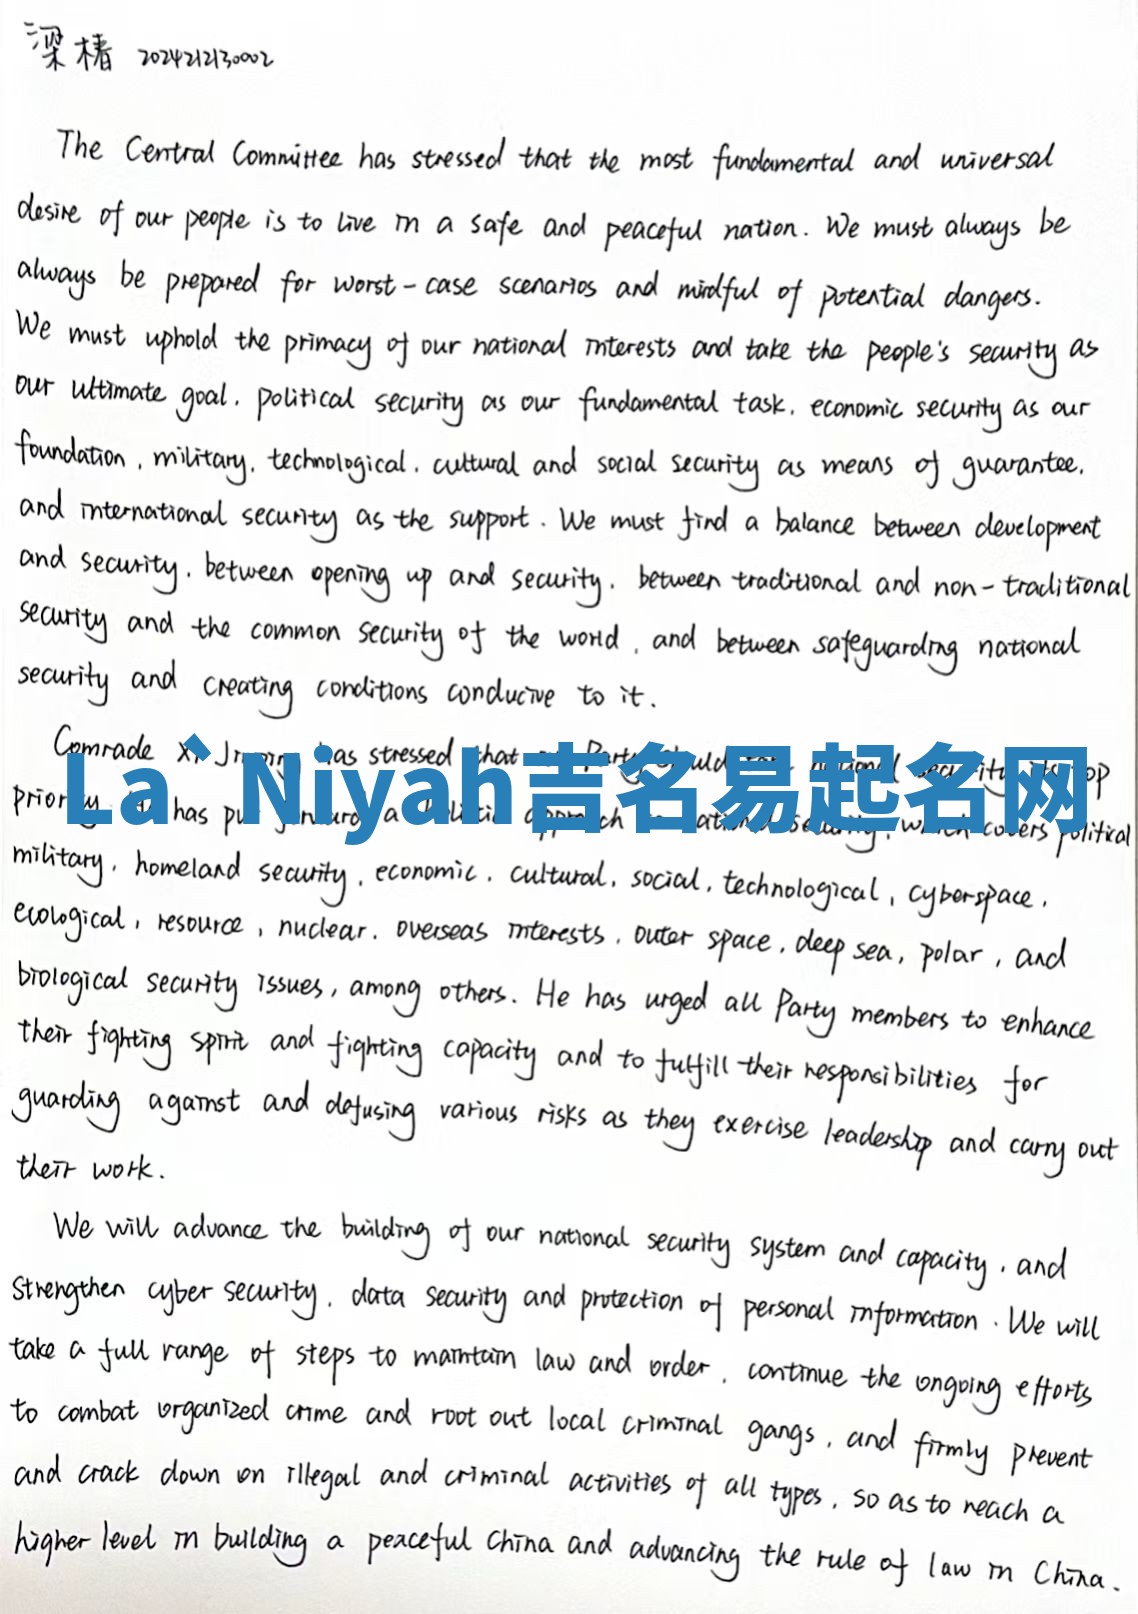 梁椿 2024212130002
The Central Committee has stressed that the most fundamental and universal
desire of our people is to live in a safe and peaceful nation. We must always be
always be prepared for worst-case scenarios and mindful of potential dangers.
We must uphold the primacy of our national interests and take the people's security as
our ultimate goal, political security as our fundamental task, economic security as our
foundation, military, technological, cultural and social security as means of guarantee,
and international security as the support. We must find a balance between development
and security, between opening up and security, between traditional and non-traditional
security and the common security of the world, and between safeguarding national
security and creating conditions conducive to it.
Comrade Xi Jinping has stressed that Party should national security its top
La`Niyah吉名易起名网
priority. has put forward a holistic approach national security, which covers political
military, homeland security, economic, cultural, social, technological, cyberspace,
ecological, resource, nuclear, overseas interests, outer space, deep sea, polar, and
biological security issues, among others. He has urged all Party members to enhance
their fighting spirit and fighting capacity and to fulfill their responsibilities for
guarding against and defusing various risks as they exercise leadership and carry out
their work.
We will advance the building of our national security system and capacity, and
strengthen cyber security, data security and protection of personal information. We will
take a full range of steps to maintain law and order, continue the ongoing efforts
to combat organized crime and root out local criminal gangs, and firmly prevent
and crack down on illegal and criminal activities of all types, so as to reach a
higher level in building a peaceful China and advancing the rule of law in China.